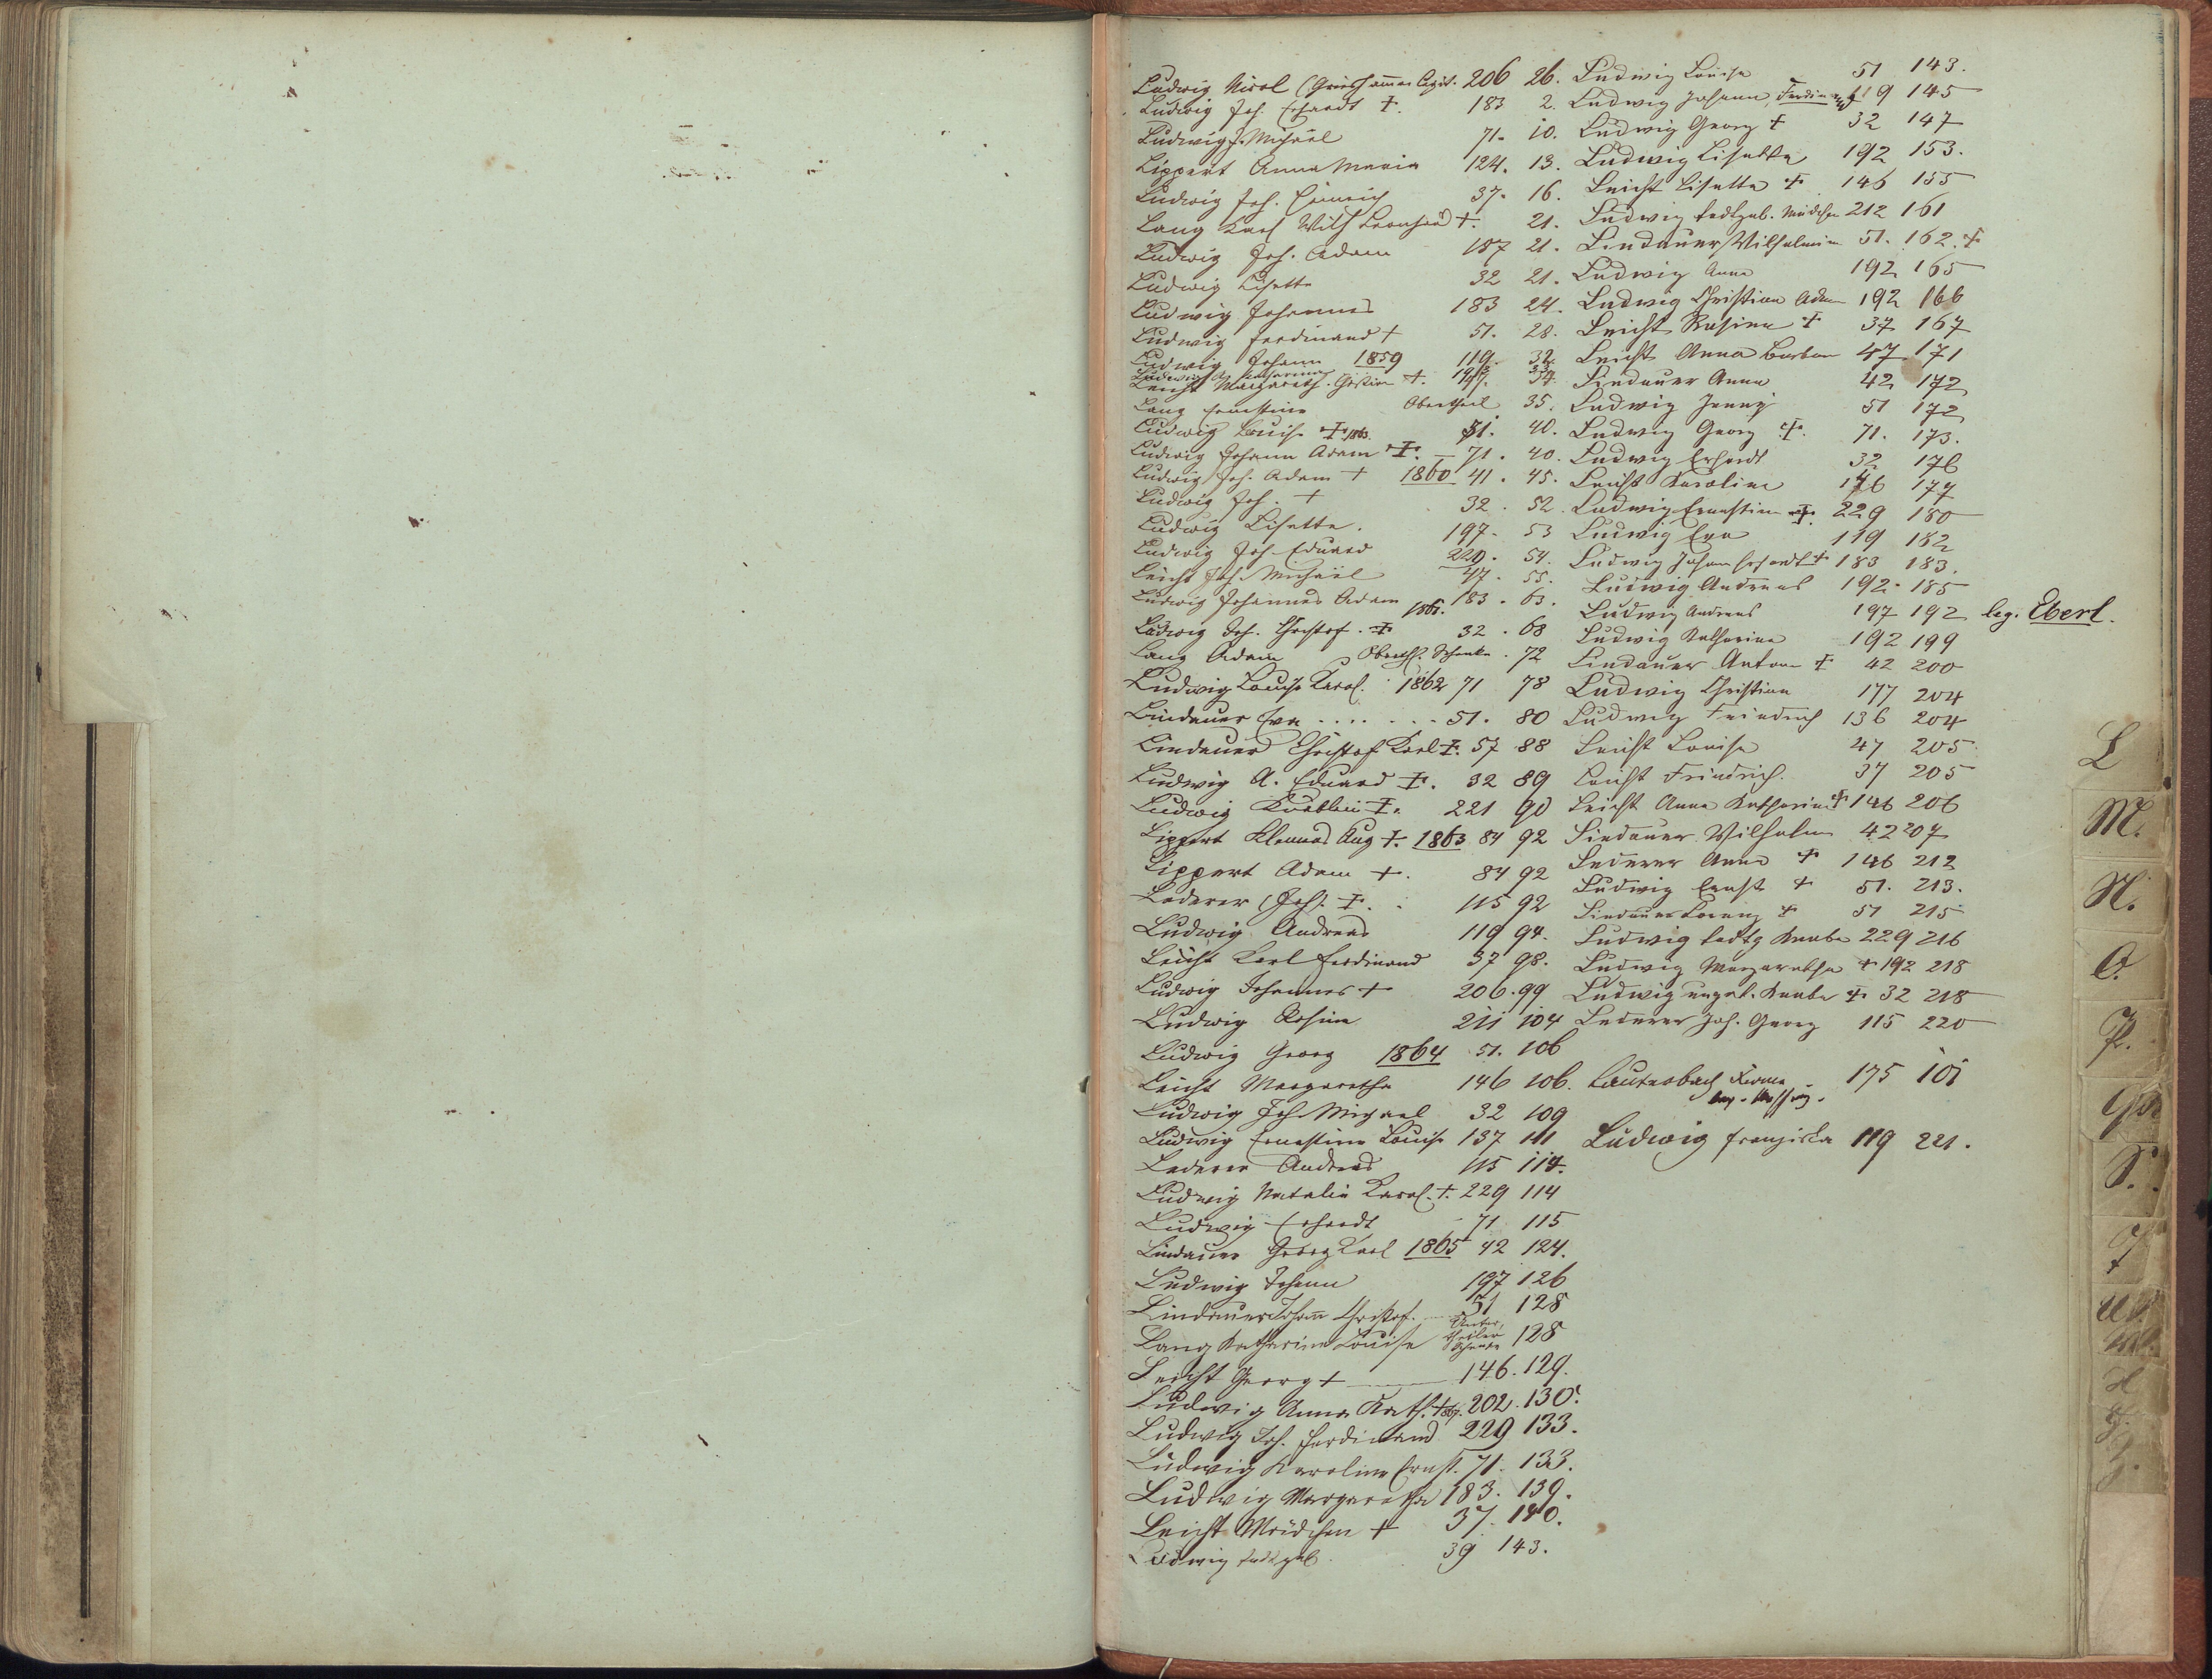 Ludwig Nicol (Grieshammer legit. 206 26.
Ludwig Joh. Erhardt +. 183 2.
Ludwig J. Michael 71. 10.
Lippert Anna Maria 124. 13.
Ludwig Joh. Heinrich 37. 16.
Lang Karl Wilh Leonhard +. 21.
Ludwig Joh. Adam 187 21.
Ludwig Lisette 32 21.
Ludwig Johannes 183 24.
Ludwig Ferdinand + 51. 28.
Ludwig Johann 1859 119. 32.
Ludwig Katharina
Leicht Margareth. Christina +. 34.
Lang Ernestine Obertheil 35.
Ludwig Louise + 1863. 51. 40.
Ludwig Johann Adam +. – 71. 40.
Ludwig Joh. Adam + 1860 41. 45.
Ludwig Joh. + 32. 52.
Ludwig Lisette. 197. 53
Ludwig Joh. Eduard 229. 54.
Leicht Joh. Michael 47. 55.
Ludwig Johannes Adam 183. 63.
Ludwig Joh. Christof. + 1861. 32. 68
Lang Adam Oberth. Schenke. 72
Ludwig Louise Karol. 1862 71 78
Lindauer Eva . . . . . . . 51. 80
Lindauer Christof Karl +. 57 88
Ludwig A. Eduard +. 32 89
Ludwig Knäblein +. 221 90
Lippert Klemens Aug +. 1863 84 92
Lippert Adam +. 84 92
Lederer Joh. +. 115 92
Ludwig Andreas 119 94.
Leicht Karl Ferdinand 37 98.
Ludwig Johannes + 206. 99
Ludwig Rosine 211 104
Ludwig Georg 1864 51. 106
Leicht Margaretha 146 106.
Ludwig Joh. Michael 32 109
Ludwig Ernestine Louise 137 111
Lederer Andreas 115 114.
Ludwig Natalie Karol. +. 229 114
Ludwig Erhardt 71 115
Lindauer Georg Karl 1865 42 124.
Ludwig Johann 197 126
Lindauer Johann Christof. 51 128
Lang Katharina Louise Unter, theiler Schenke 128
Leicht Georg + 146. 129.
Ludwig Anna Kath. + 202. 130.
Ludwig Joh. Ferdinand 229 133.
Ludwig Karoline Ernst. 71. 133.
Ludwig Margaretha 183. 139.
Leicht Mädchen + 37. 140.
Ludwig todtgeb. 39 143.
Ludwig Louise 51 143.
Ludwig Johann Ferdinand 119 145
Ludwig Georg + 32 147
Ludwig Lisetta 192 153.
Leicht Lisetta + 146 155
Ludwig todtgeb. Mädchen 212 161
Lindauer Wilhelmine 51. 162. +
Ludwig Anna 192 165
Ludwig Christian Adam 192 166
Leicht Rosina + 37 167
Leicht Anna Barbara 47 171
Lindauer Anna 42 172
Ludwig Jenny 51 172
Ludwig Georg +. 71. 173.
Ludwig Erhardt 32 176
Leicht Karoline 146 177
Ludwig Ernestine +. 229 180
Ludwig Eva 119 182
Ludwig Johann Erhardt + 183 183.
Ludwig Andreas 192. 185
Ludwig Andreas 197 192 leg. Eberl.
Ludwig Katharina 192 199
Lindauer Anton + 42 200
Ludwig Christian 177 204
Ludwig Friedrich 136 204
Leicht Louise 47 205
Leicht Friedrich. 37 205
Leicht Anna Katharina + 146 206
Lindauer Wilhelm 42 207
Lederer Anna + 146 212
Ludwig Ernst + 51. 213.
Lindauer Lorenz + 51 215
Ludwig todtg Knabe 229 216
Ludwig Margaretha + 192 218
Ludwig ungt. Knabe + 32 218
Lederer Joh. Georg 115 220
Lauterbach 175 101
Ludwig Franziska 119 221.
L
M.
N.
O.
P.
S.
T
U
Z.